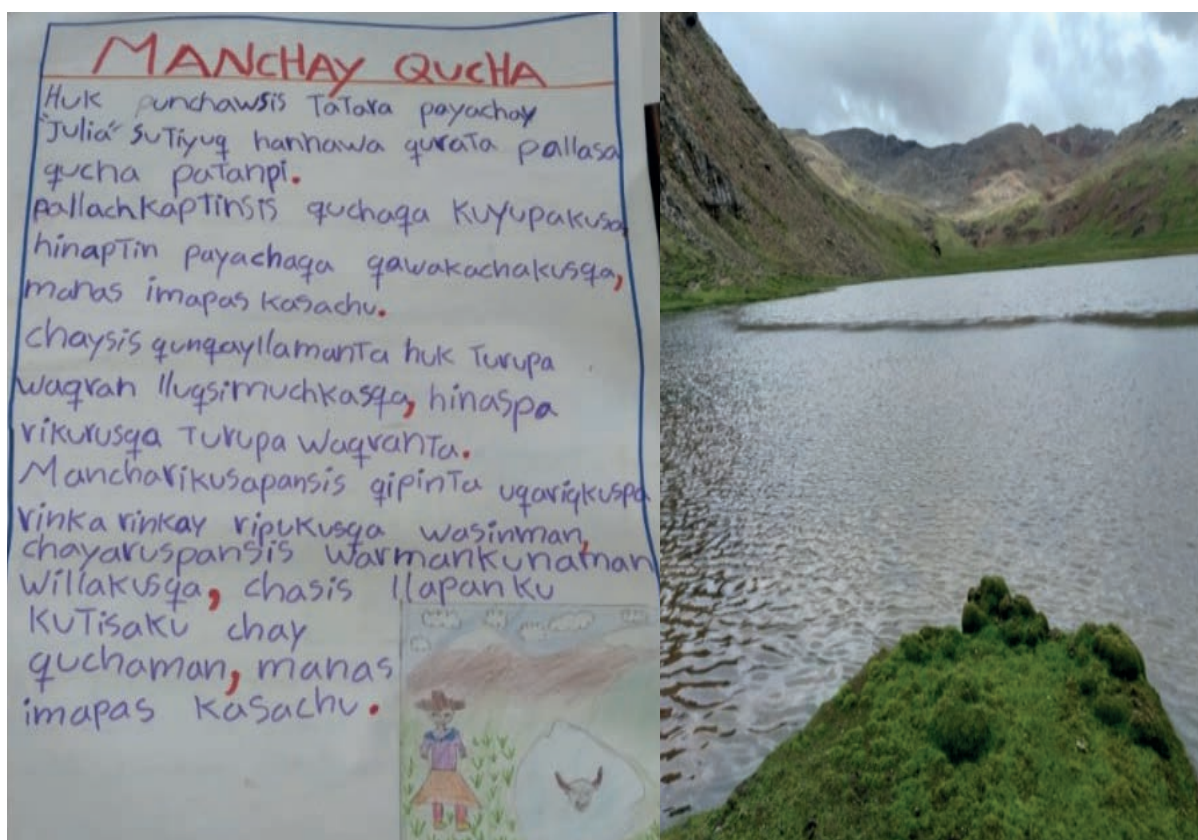 MANCHAY QUCHA
Huk punchawsis Tatara payachay
"Julia" sutiyuq hanhawa qurata pallasa
qucha patanpi.
pallachkaptinsis quchaqa kuyupakusqa
hinaptin payachaqa qawakachakusqa,
manas imapas kasachu.
chaysis qunqayllamanta huk turupa
waqran lluqsimuchkasqa, hinaspa
rikurusqa turupa waqranta.
Mancharikusapansis qipinta uqariqkuspa
rinka rinkay ripukusqa wasinman,
chayaruspansis warmankunaman
willakusqa, chasis llapanku
kutisaku chay
quchaman, manas
imapas kasachu.